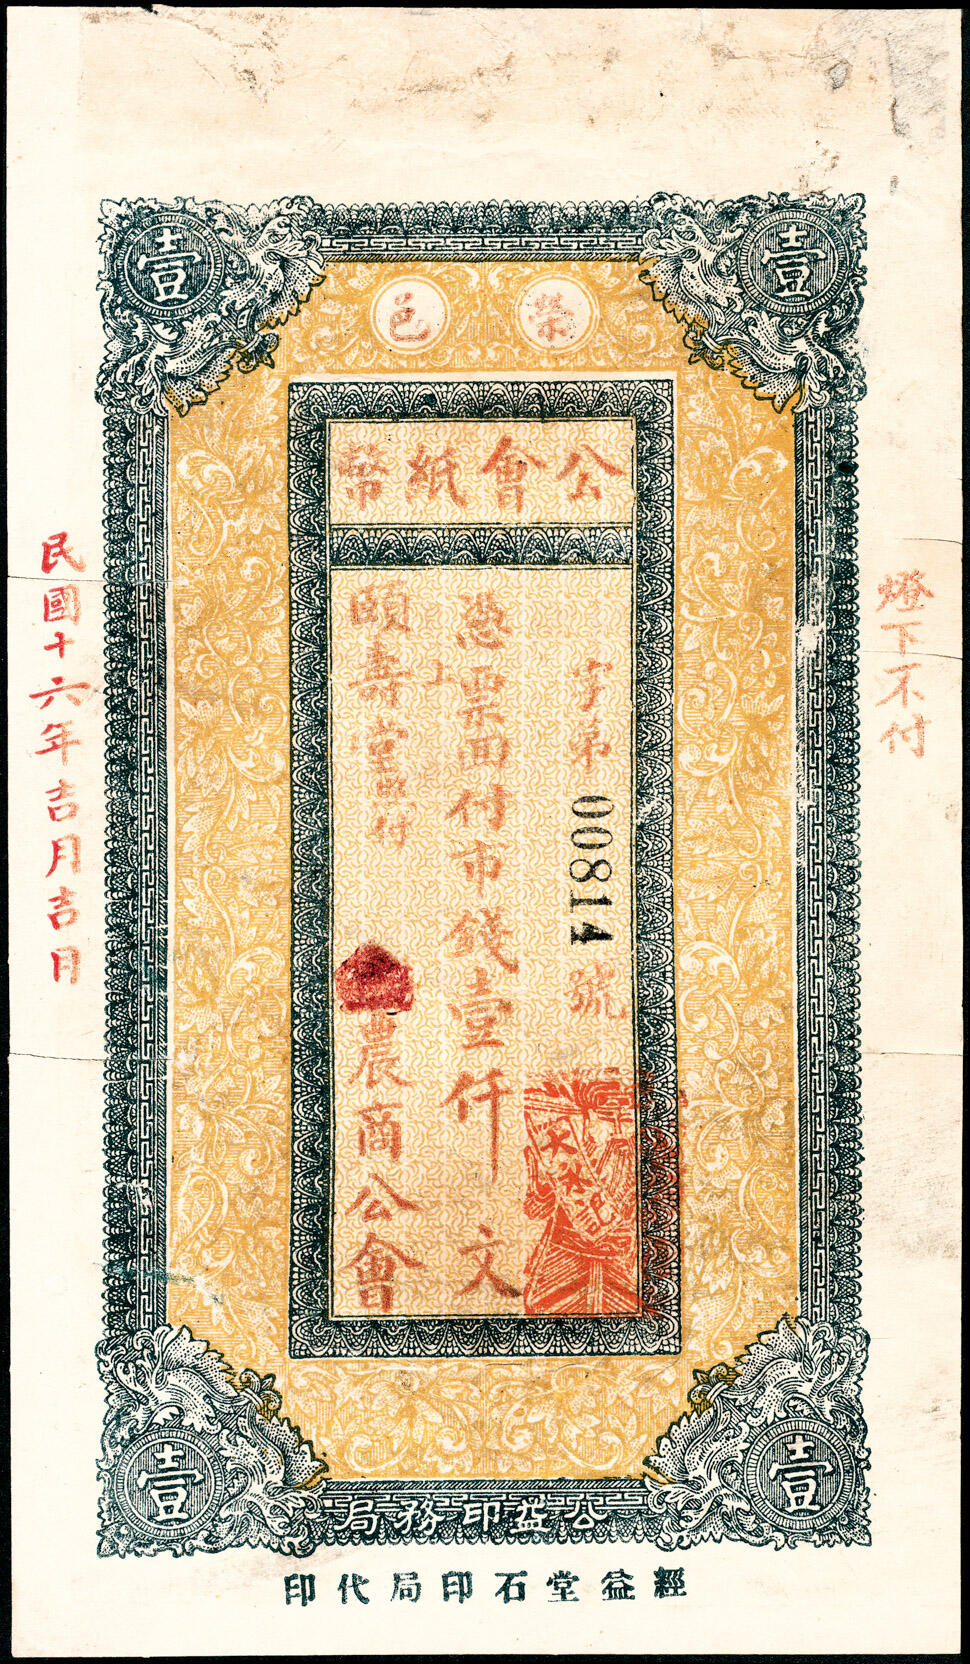 壹
壹
榮邑
公會紙幣
字第00814號
憑票面付市錢壹仟文
頤壽堂
付
農商公會
燈下不付
民國十六年吉月吉日
壹
壹
公益印務局
經益堂石印局代印